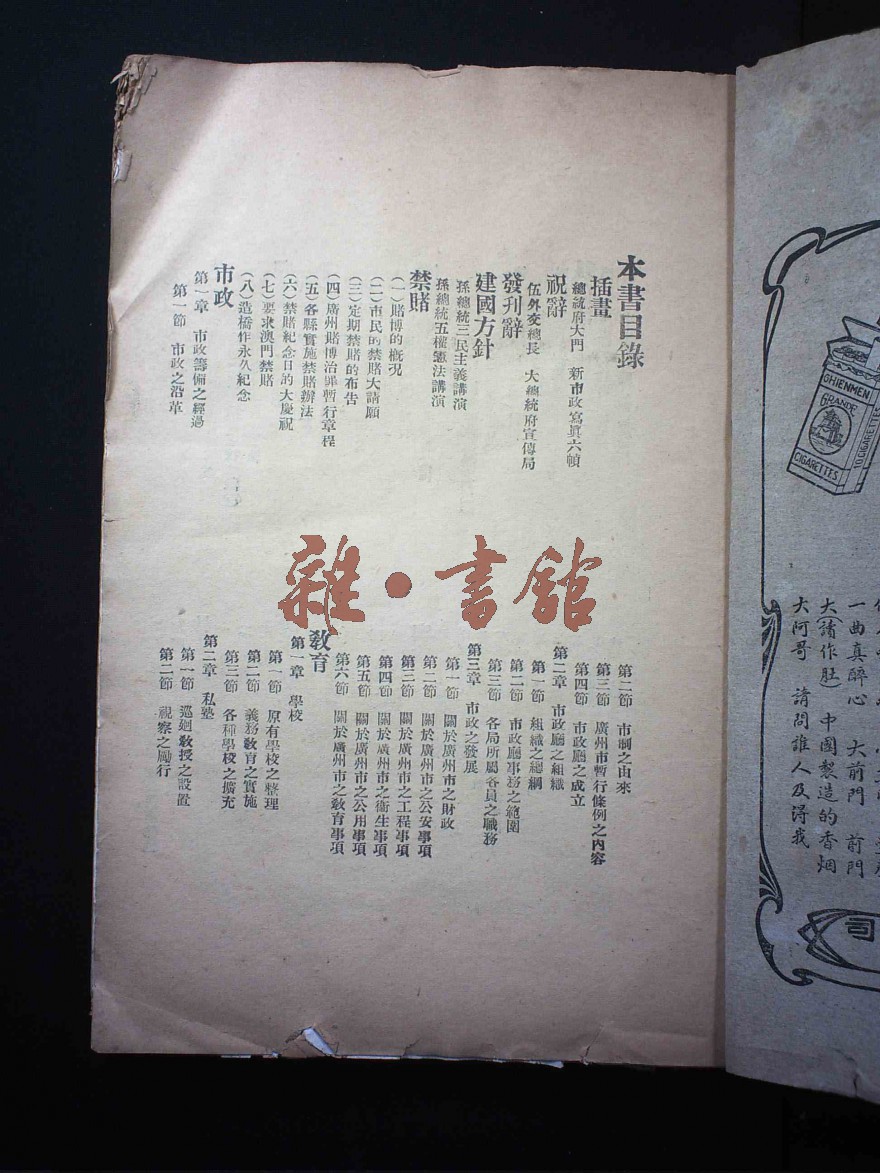 本書目錄
插畫
總統府大門　新市政寫眞六幀
祝辭
伍外交總長　大總統府宣傳局
發刊辭
建國方針
孫總統三民主義講演
孫總統五權憲法講演
禁賭
(一)賭博的槪況
(二)市民的禁賭大請願
(三)定期禁賭的布告
(四)廣州賭博治罪暫行章程
(五)各縣實施禁賭辦法
(六)禁賭紀念日的大慶祝
(七)要求澳門禁賭
(八)造橋作永久紀念
市政
第一章　市政籌備之經過
第一節　市政之沿革
第二節　市制之由來
第三節　廣州市暫行條例之內容
第四節　市政廳之成立
第二章　市政廳之組織
第一節　組織之總綱
第二節　市政廳事務之範圍
第三節　各局所屬各員之職務
第三章　市政之發展
第一節　關於廣州市之財政
第二節　關於廣州市之公安事項
第三節　關於廣州市之工程事項
第四節　關於廣州市之衞生事項
第五節　關於廣州市之公用事項
第六節　關於廣州市之敎育事項
敎育
第一章　學校
第一節　原有學校之整理
第二節　義務敎育之實施
第三節　各種學校之擴充
第二章　私塾
第一節　巡廻敎授之設置
第二節　視察之勵行
雜·書館
CHIENMEN
GRANDE
CIGARETTES
10 CIGARETTES
一曲真醉心　大前門　前門
大(請作肚)中國製造的香烟
大阿哥　請問誰人及得我
司